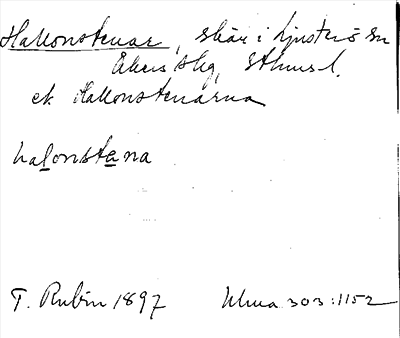 Hallonstenar, skär i Ljusterö sn
Åkers skg, Sthms l.
ek Hallonstenarna
halonstena
T. Rubin 1897 Ulma 303:1152